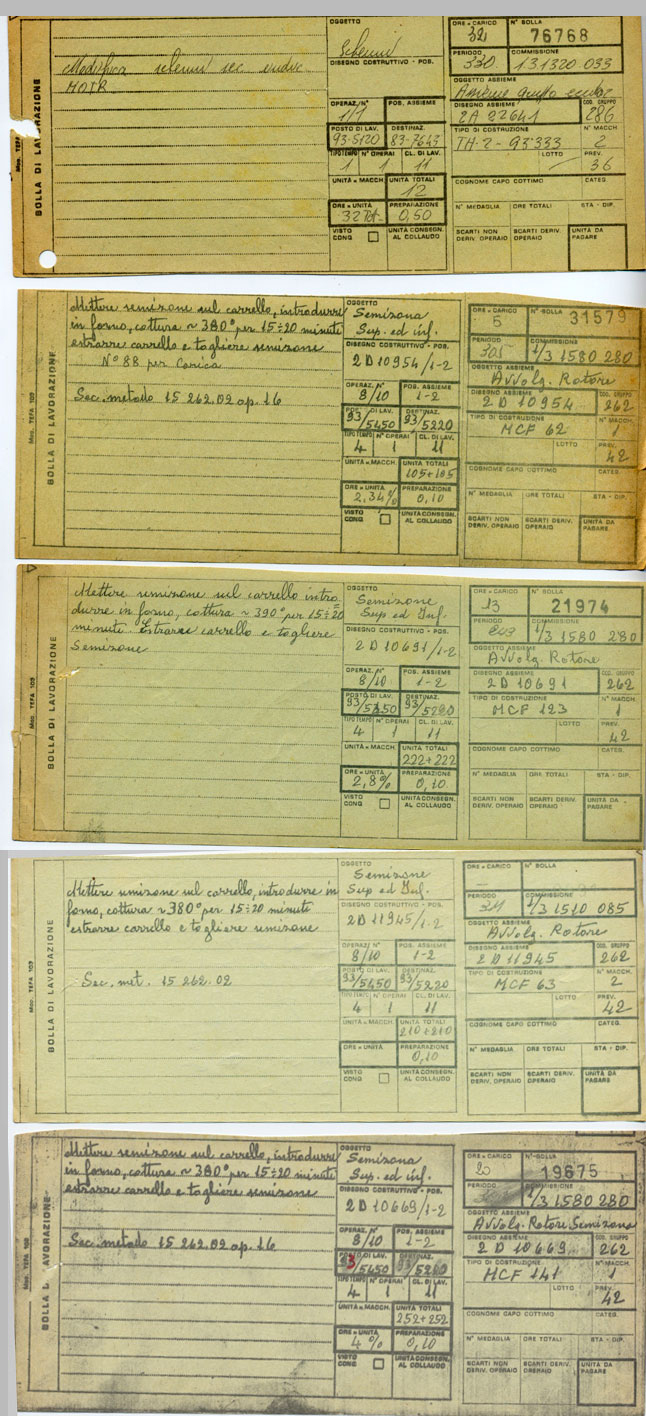 BOLLA DI LAVORAZIONE
Modifica schemi sec.
MOTR
OGGETTO
Schemi
DISEGNO COSTRUTTIVO - POS.
OPERAZ./N° POS. ASSIEME
1/1
POSTO DI LAV. DESTINAZ.
93-5120 83-7643
TIPO TEMPO N° OPERAI CL. DI LAV.
1 1 11
UNITÀ = MACCH UNITÀ TOTALI
12
ORE = UNITÀ PREPARAZIONE
32 Tot- 0,50
VISTO CONG UNITÀ CONSEGN. AL COLLAUDO
ORE = CARICO N° BOLLA
32 76768
PERIODO COMMISSIONE
330 131320 033
OGGETTO ASSIEME
DISEGNO ASSIEME COD. GRUPPO
2A 22641 286
TIPO DI COSTRUZIONE N° MACCH
TH-2-93333 2
LOTTO PREV.
36
COGNOME CAPO COTTIMO CATEG.
N° MEDAGLIA ORE TOTALI STA - DIP.
SCARTI NON DERIV. OPERAIO SCARTI DERIV. OPERAIO UNITÀ DA PAGARE
Mod. TEFA 109
BOLLA DI LAVORAZIONE
Mettere semizone sul carrello, introdurre
in forno, cottura ~ 380° per 15÷20 minuti
estrarre carrello e togliere semizone
N° 88 per Carica
Sec. metodo 15 262.02 op. 16
OGGETTO
Semizona
Sup. ed inf.
DISEGNO COSTRUTTIVO - POS.
2 D 10954/1-2
OPERAZ. N° POS. ASSIEME
8/10 1-2
POSTO DI LAV. DESTINAZ.
93/5450 93/5220
TIPO TEMPO N° OPERAI CL. DI LAV.
4 1 11
UNITÀ = MACCH. UNITÀ TOTALI
105+105
ORE = UNITÀ PREPARAZIONE
2,34% 0,10
VISTO CONG UNITÀ CONSEGN. AL COLLAUDO
ORE = CARICO N° BOLLA
5 31579
PERIODO COMMISSIONE
305 1/3 1580 280
OGGETTO ASSIEME
Avvolg. Rotore
DISEGNO ASSIEME COD. GRUPPO
2 D 10954 262
TIPO DI COSTRUZIONE N° MACCH.
MCF 62 1
LOTTO PREV.
42
COGNOME CAPO COTTIMO CATEG.
N° MEDAGLIA ORE TOTALI STA - DIP.
SCARTI NON DERIV. OPERAIO SCARTI DERIV. OPERAIO UNITÀ DA PAGARE
Mod. TEFA 109
BOLLA DI LAVORAZIONE
Mettere semizone sul carrello intro
durre in forno, cottura ~ 390° per 15÷20
minuti. Estrarre carrello e togliere
Semizone
OGGETTO
Semizone
Sup ed Inf.
DISEGNO COSTRUTTIVO - POS.
2 D 10691/1-2
OPERAZ. N° POS. ASSIEME
8/10 1-2
POSTO DI LAV. DESTINAZ.
93/5450 93/5280
TIPO TEMPO N° OPERAI CL. DI LAV.
4 1 11
UNITÀ = MACCH. UNITÀ TOTALI
222+222
ORE = UNITÀ PREPARAZIONE
2,8% 0,10
VISTO CONG UNITÀ CONSEGN. AL COLLAUDO
ORE = CARICO N° BOLLA
13 21974
PERIODO COMMISSIONE
1/3 1580 280
OGGETTO ASSIEME
Avvolg. Rotore
DISEGNO ASSIEME COD. GRUPPO
2 D 10691 262
TIPO DI COSTRUZIONE N° MACCH.
MCF 123 1
LOTTO PREV.
42
COGNOME CAPO COTTIMO CATEG.
N° MEDAGLIA ORE TOTALI STA - DIP.
SCARTI NON DERIV. OPERAIO SCARTI DERIV. OPERAIO UNITÀ DA PAGARE
Mod. TEFA 109
BOLLA DI LAVORAZIONE
Mettere semizone sul carrello, introdurre in
forno, cottura ~ 380° per 15÷20 minuti
estrarre carrello e togliere semizone
Sec. met. 15 262.02
OGGETTO
Semizone
Sup ed Inf.
DISEGNO COSTRUTTIVO - POS.
2 D 11945/1-2
OPERAZ. N° POS. ASSIEME
8/10 1-2
POSTO DI LAV. DESTINAZ.
93/5450 93/5220
TIPO TEMPO N° OPERAI CL. DI LAV.
4 1 11
UNITÀ = MACCH. UNITÀ TOTALI
210+210
ORE = UNITÀ PREPARAZIONE
0,10
VISTO CONG UNITÀ CONSEGN. AL COLLAUDO
ORE = CARICO N° BOLLA
PERIODO COMMISSIONE
1/3 1510 085
OGGETTO ASSIEME
Avvolg. Rotore
DISEGNO ASSIEME COD. GRUPPO
2 D 11945 262
TIPO DI COSTRUZIONE N° MACCH.
MCF 63 2
LOTTO PREV.
42
COGNOME CAPO COTTIMO CATEG.
N° MEDAGLIA ORE TOTALI STA - DIP.
SCARTI NON DERIV. OPERAIO SCARTI DERIV. OPERAIO UNITÀ DA PAGARE
Mod. TEFA 109
BOLLA DI LAVORAZIONE
Mettere semizone sul carrello, introdurre
in forno, cottura ~ 380° per 15÷20 minuti
estrarre carrello e togliere semizone
Sec. metodo 15 262.02 op. 16
OGGETTO
Semizona
Sup. ed inf.
DISEGNO COSTRUTTIVO - POS.
2 D 10669/1-2
OPERAZ. N° POS. ASSIEME
8/10 1-2
POSTO DI LAV. DESTINAZ.
93/5450 93/5280
TIPO TEMPO N° OPERAI CL. DI LAV.
4 1 11
UNITÀ = MACCH. UNITÀ TOTALI
252+252
ORE = UNITÀ PREPARAZIONE
4% 0,10
VISTO CONG UNITÀ CONSEGN. AL COLLAUDO
ORE = CARICO N° BOLLA
20 19675
PERIODO COMMISSIONE
1/3 1580 280
OGGETTO ASSIEME
Avvolg. Rotore Semizona
DISEGNO ASSIEME COD. GRUPPO
2 D 10669 262
TIPO DI COSTRUZIONE N° MACCH.
MCF 141 1
LOTTO PREV.
42
COGNOME CAPO COTTIMO CATEG.
N° MEDAGLIA ORE TOTALI STA - DIP.
SCARTI NON DERIV. OPERAIO SCARTI DERIV. OPERAIO UNITÀ DA PAGARE